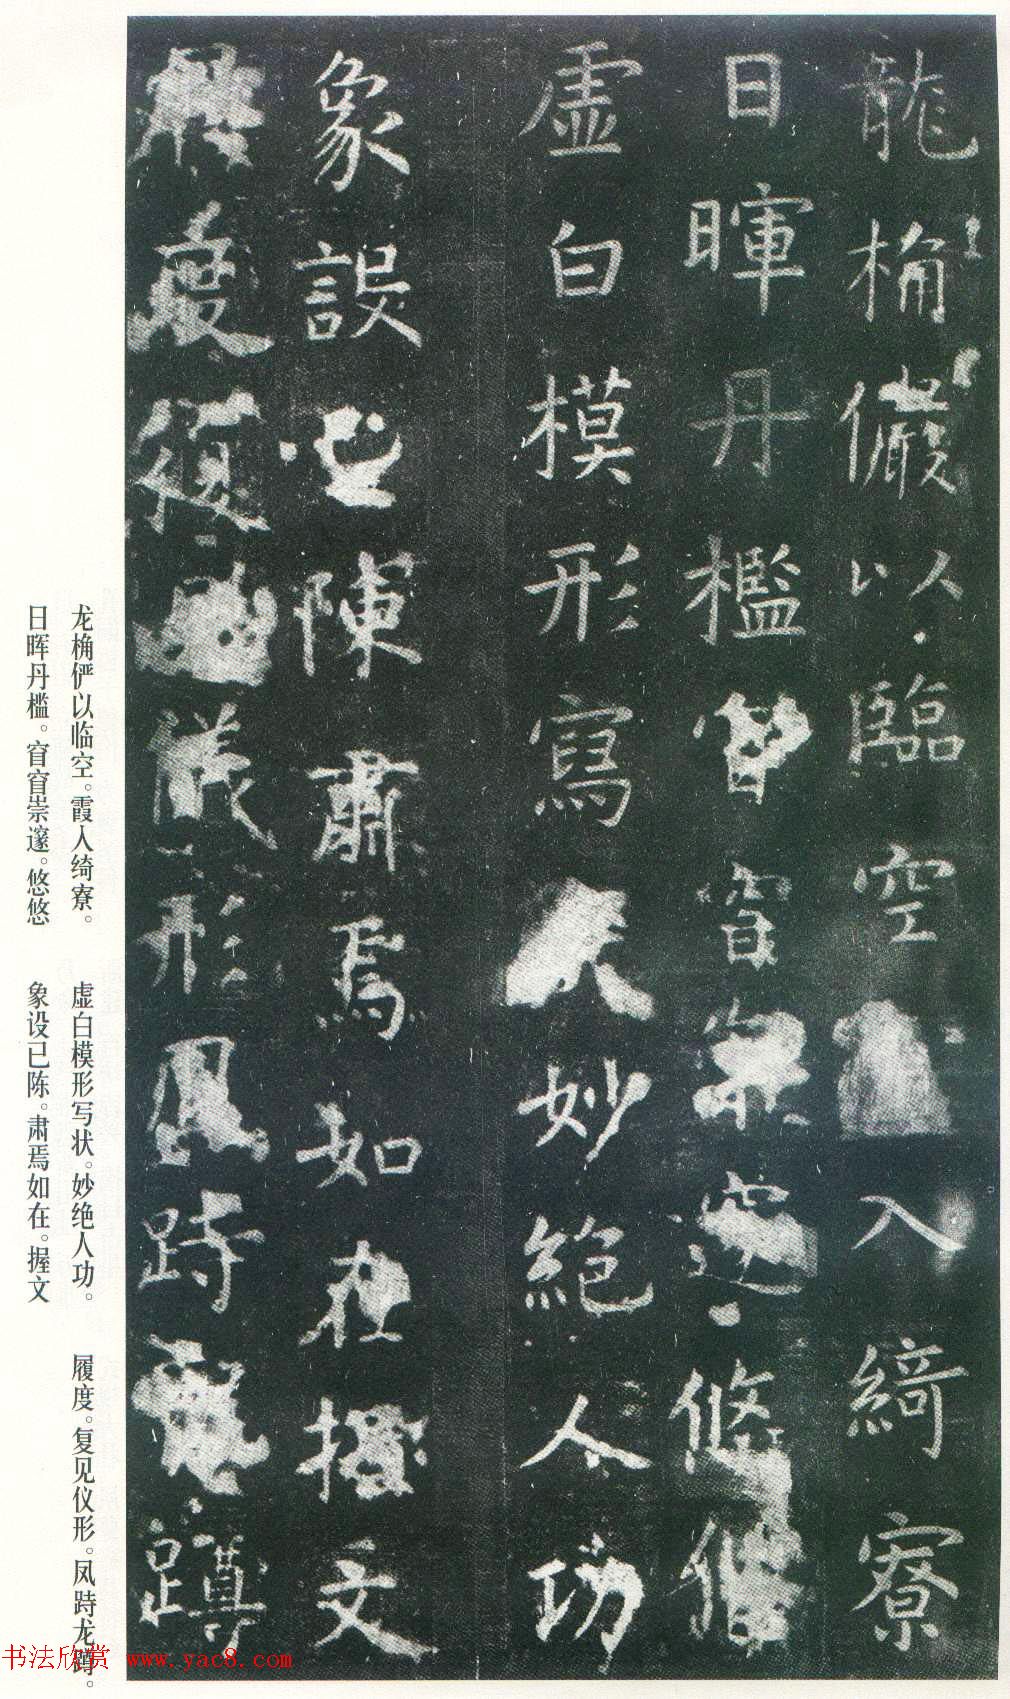 龍桷儼以臨空入綺寮
日暉丹檻窅窅崇邃悠悠
虛白模形寫妙絕人功
象設已陳肅焉如在握文
履度復儀形鳳跱龍蹲
龙桷俨以临空。霞入绮寮。
日晖丹槛。窅窅崇邃。悠悠
虚白模形写状。妙绝人功。
象设已陈。肃焉如在。握文
履度。复见仪形。凤跱龙蹲。
书法欣赏 www.yac8.com